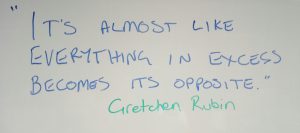 "IT'S ALMOST LIKE
EVERYTHING IN EXCESS
BECOMES ITS OPPOSITE."
Gretchen Rubin